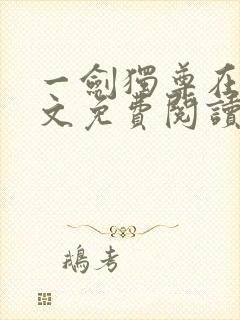 一劍獨尊在
文免費閱讀
鵝考